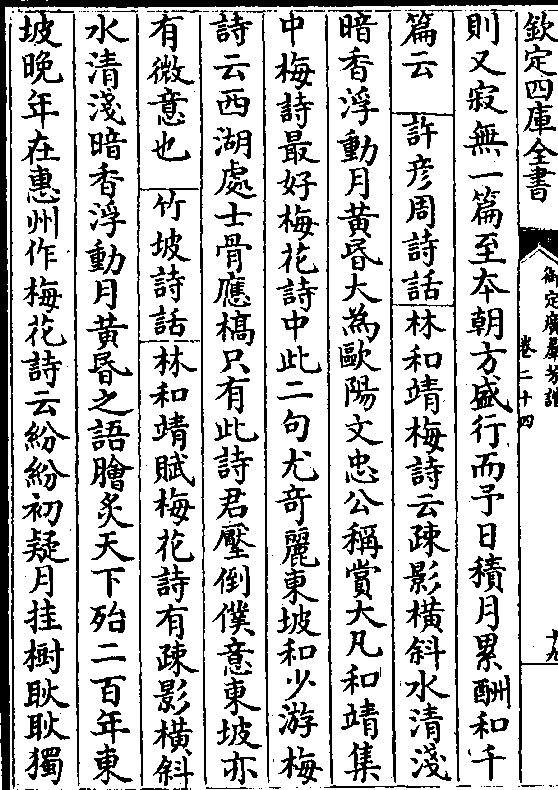 欽定四庫全書
御定廣羣芳譜
卷二十四
十九
則又寂無一篇至本朝方盛行而予日積月累酬和千
篇云 許彦周詩話林和靖梅詩云疎影橫斜水清淺
暗香浮動月黃昏大為歐陽文忠公稱賞大凡和靖集
中梅詩最好梅花詩中此二句尤奇麗東坡和少游梅
詩云西湖處士骨應槁只有此詩君壓倒僕意東坡亦
有微意也 竹坡詩話林和靖賦梅花詩有疎影橫斜
水清淺暗香浮動月黃昏之語膾炙天下殆二百年東
坡晚年在惠州作梅花詩云紛紛初疑月挂樹耿耿獨